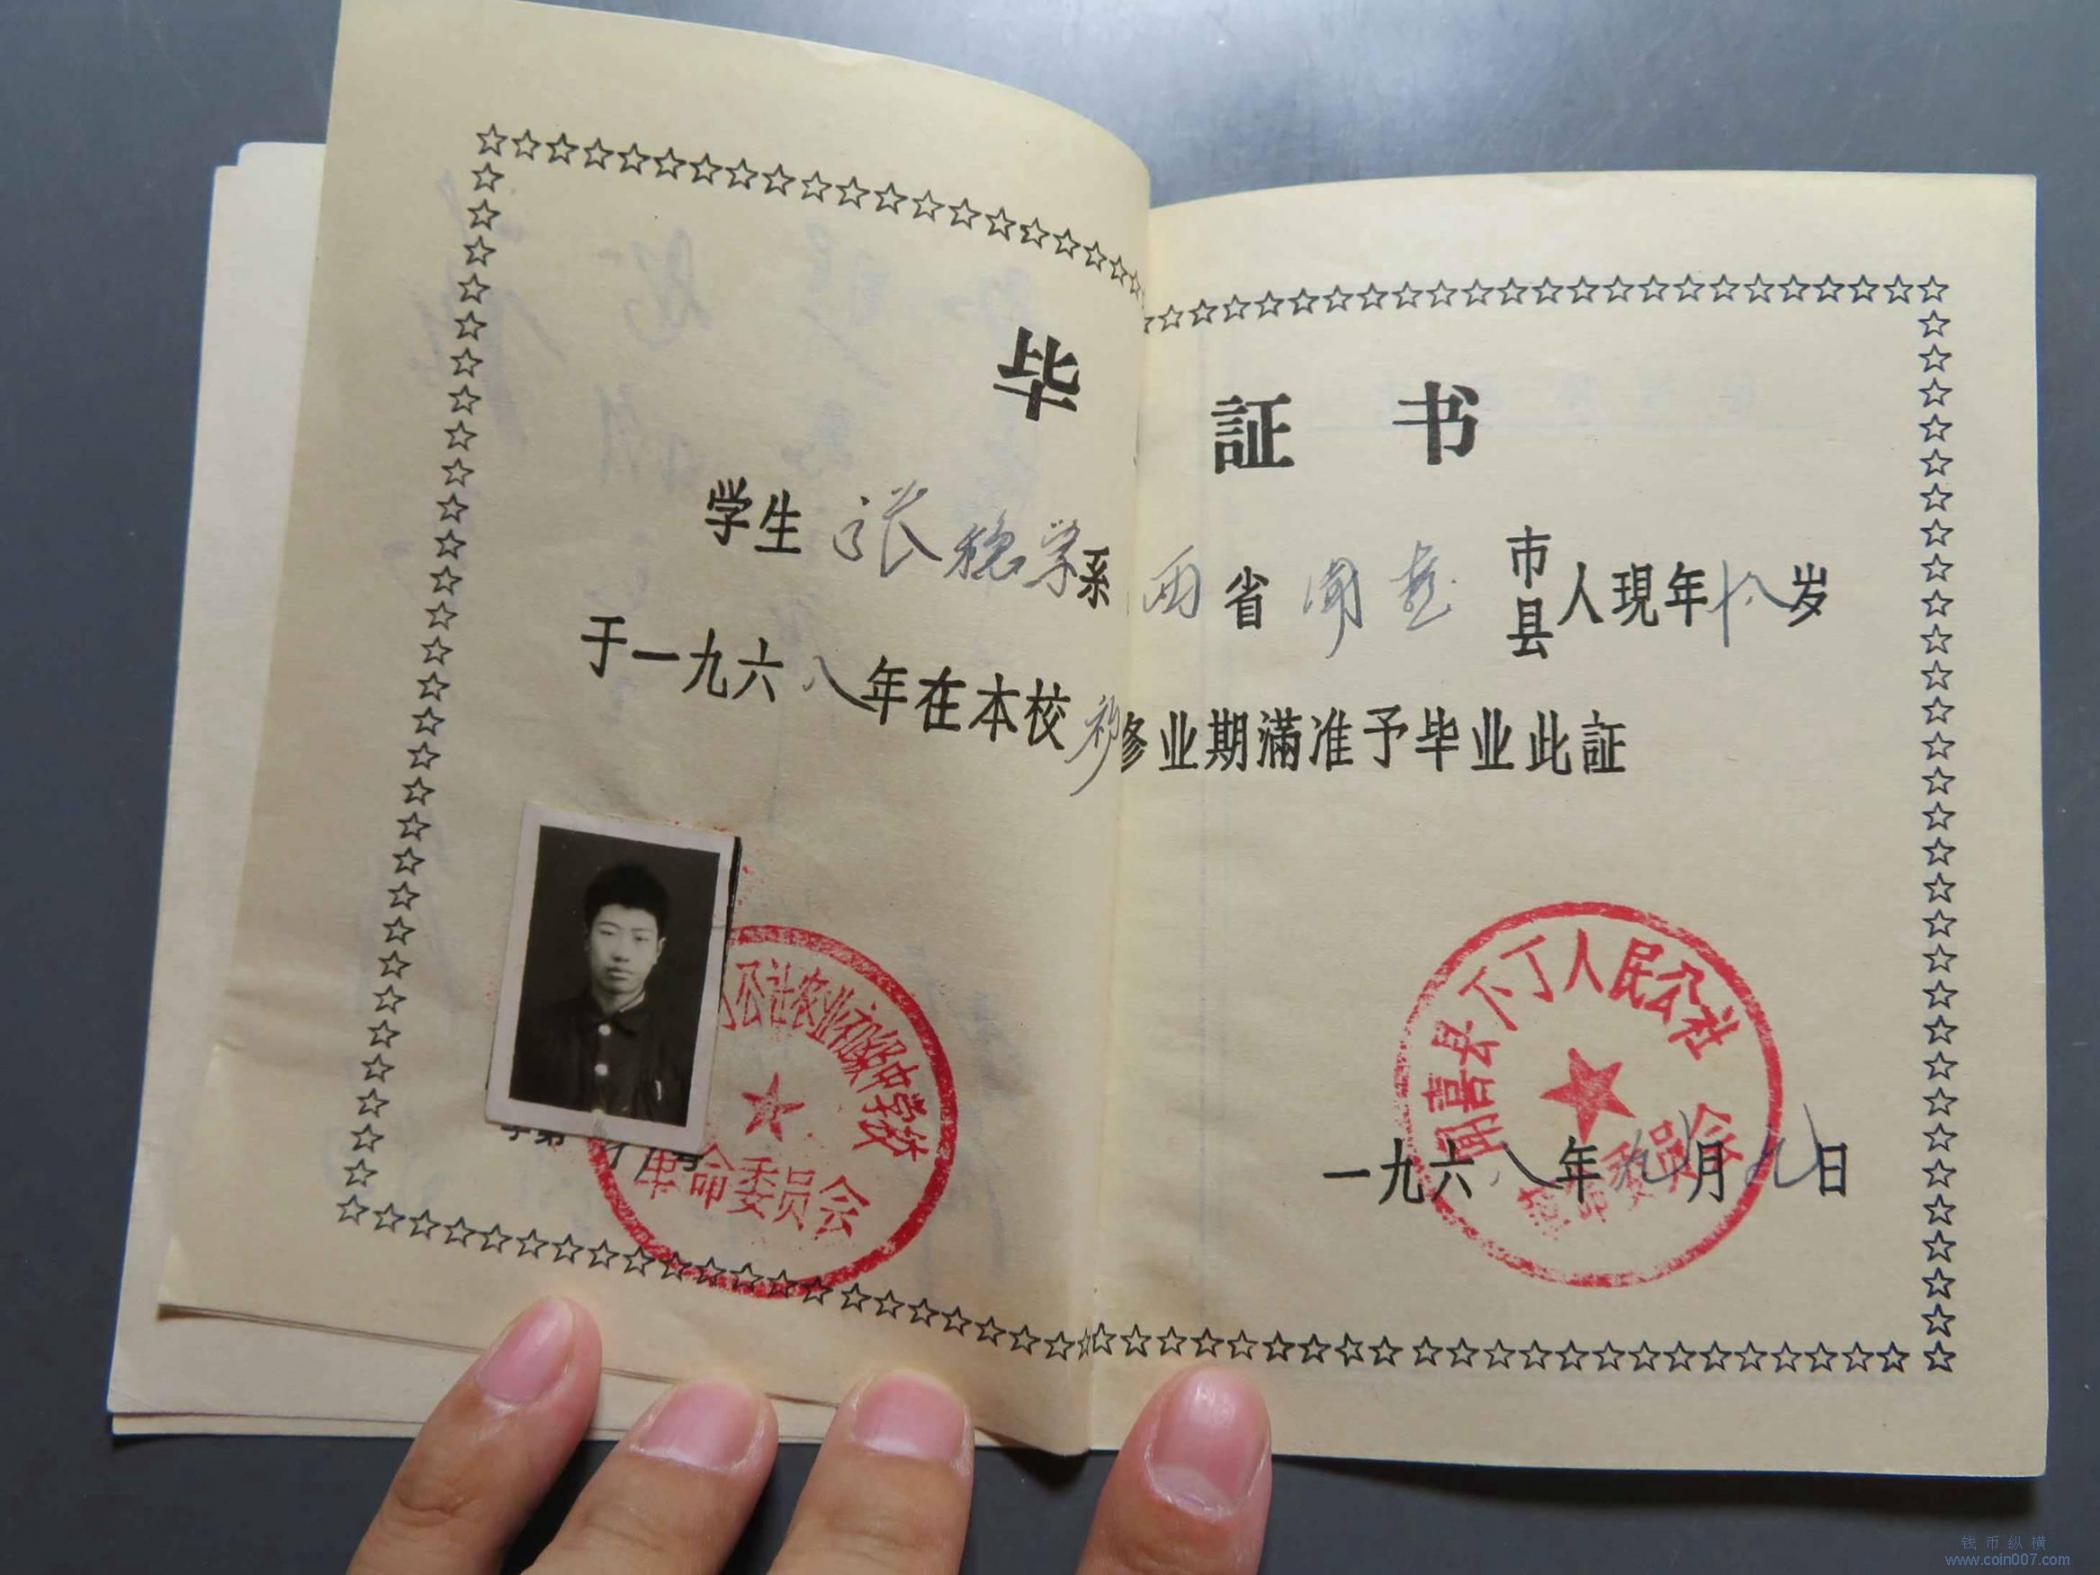 毕 証 书
学生 张稳学 系 西 省 闻喜 市县 人現年十八岁
于一九六八年在本校初修业期滿准予毕业此証
公社农业初级中学校
革命委员会
闻喜县不丁人民公社
革命委员会
一九六八年九月九日
钱币纵横
www.coin007.com